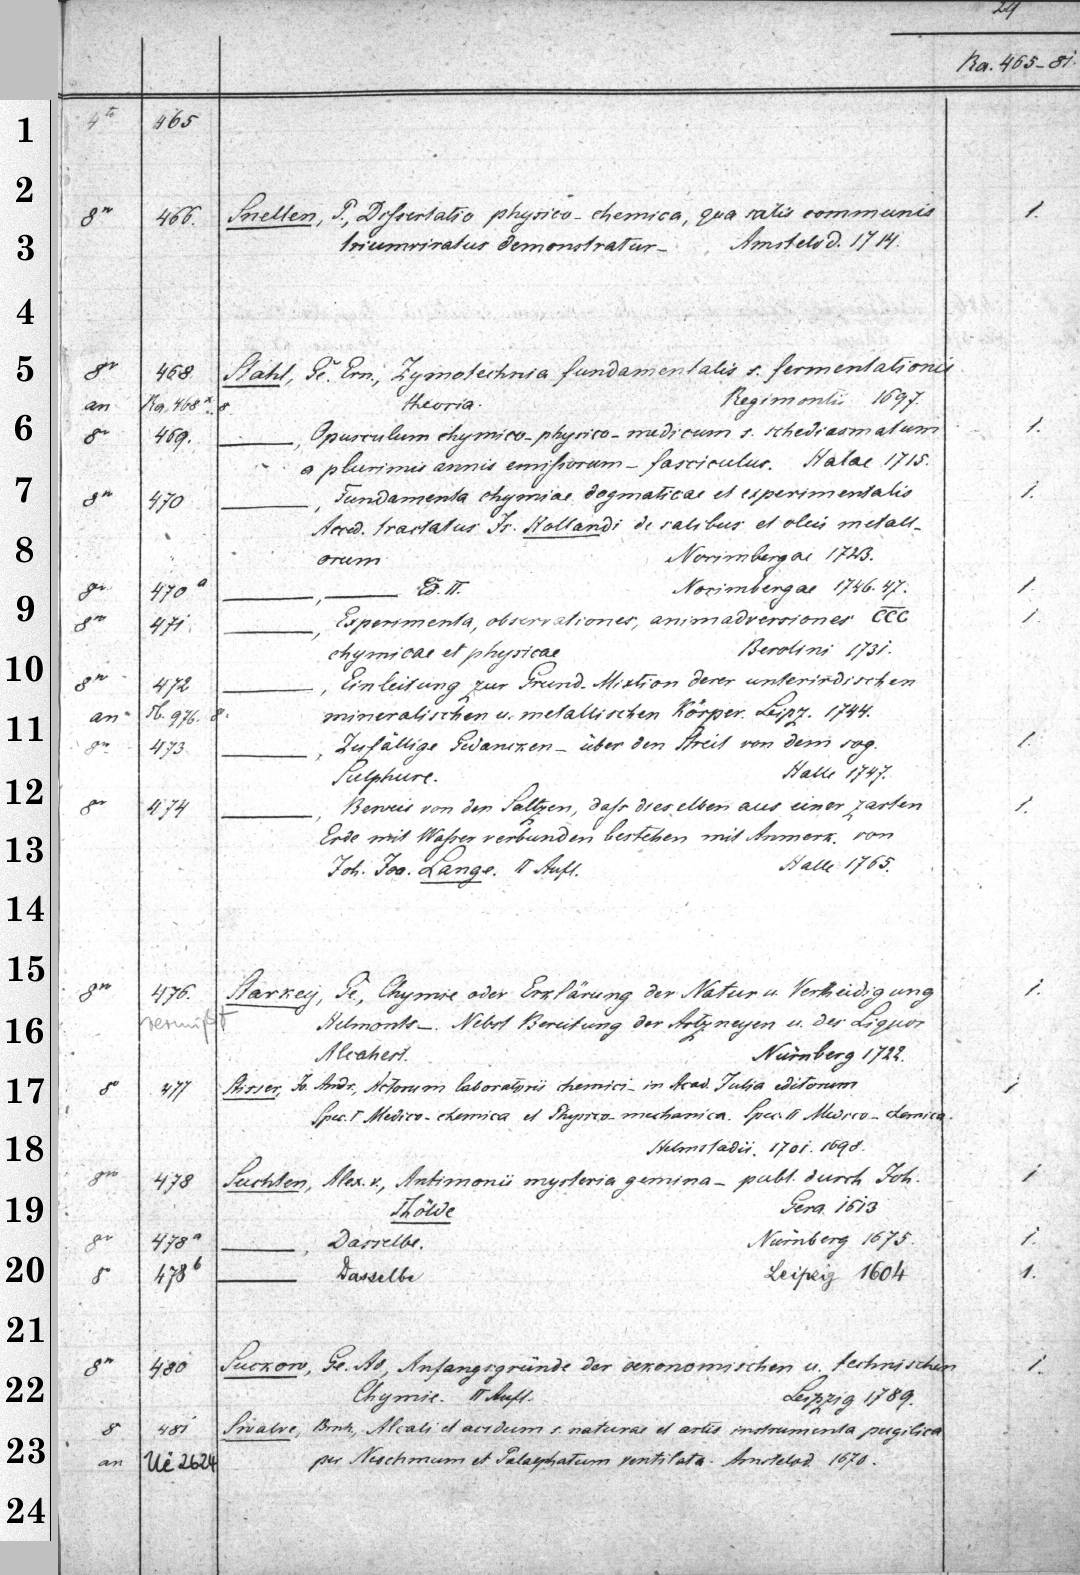 24
Ra. 465-81.
1 4to 465
2
8vo 466. Snellen, P., Dissertatio physico-chemica, qua salis communis 1.
3 triumviratus demonstratur_ Amstelod. 1714.
4
5 8vo 468. Stahl, Ge. Ern., Zymotechnia fundamentalis s. fermentationis
an Ra. 468x. 8. theoria. Regimontii 1697.
6 8vo 469. ———, Opusculum chymico-physico-medicum s. schediasmatum 1.
a plurimis annis emissorum_ fasciculus. Halae 1715.
7 8vo 470 ———, Fundamenta chymiae dogmaticae et experimentalis 1.
Acced. tractatus Is. Hollandi de salibus et oleis metall-
8 orum Norimbergae 1723.
8vo 470a ———, ——— Ed. II. Norimbergae 1746.47. 1.
9 8vo 471. ———, Experimenta, observationes, animadversiones CCC 1.
chymicae et physicae Berolini 1731.
10 8vo 472 ———, Einleitung zur Grund-Mixtion derer unterirdischen
11 an Tb. 976. 8. mineralischen u. metallischen Körper. Leipz. 1744.
8vo 473 ———, Zufällige Gedancken_ über den Streit von dem sog. 1.
12 Sulphure. Halle 1747.
8vo 474 ———, Beweis von den Saltzen, dass dieselben aus einer zarten 1.
13 Erde mit Wasser verbunden bestehen mit Anmerk. von
Joh. Joa. Lange. II Aufl. Halle 1765.
14
15
8vo 476. Starkey, Ge., Chymie oder Erklärung der Natur u. Vertheidigung 1.
16 vermißt Helmonts_. Nebst Bereitung der Artzneyen u. des Liquor
Alcahest. Nürnberg 1722.
17 8o 477 Stisser, Jo. Andr., Actorum laboratorii chemici_ in Acad. Julia editorum 1
Spec. I Medico-chemica et Physico-mechanica. Spec. II Medico-chemica.
18 Helmstadii. 1701. 1698.
8vo 478 Suchten, Alex. v., Antimonii mysteria gemina_ publ. durch Joh. 1
19 Thölde Gera 1613
8vo 478a ———, Dasselbe. Nürnberg 1675. 1.
20 8o 478b ——— Dasselbe Leipzig 1604 1.
21
8vo 480 Suckow, Ge. Ad., Anfangsgründe der oekonomischen u. technischen 1.
22 Chymie. II Aufl. Leipzig 1789.
8 481 Swalve, Brnh., Alcali et acidum s. naturae et artis instrumenta pugilica
23 an Uc 2624 per Neochmum et Palaephatum ventilata. Amstelod. 1670.
24